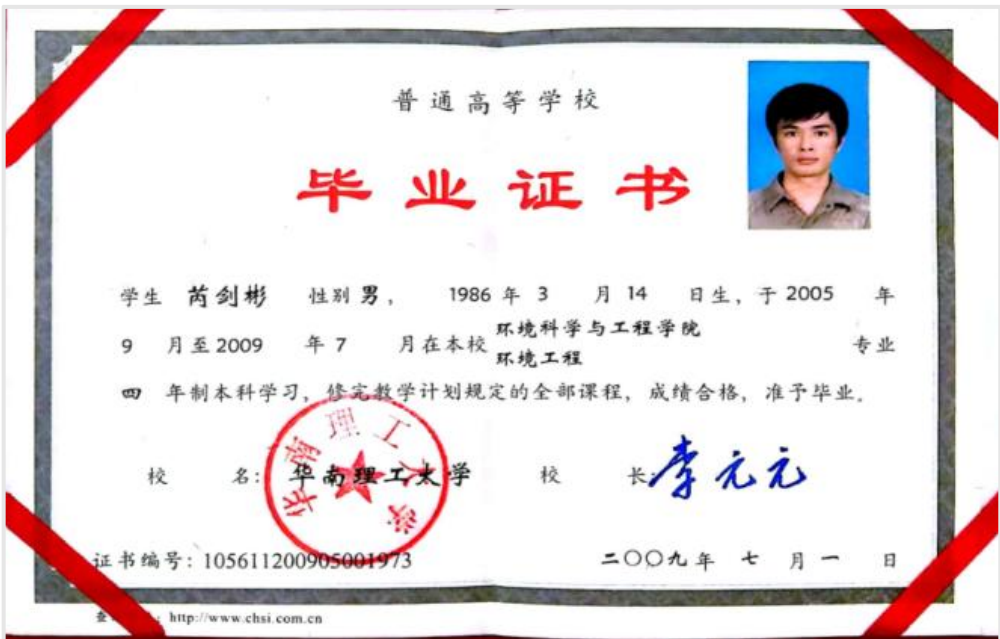 普通高等学校
毕业证书
学生 芮剑彬 性别 男， 1986 年 3 月 14 日生，于 2005 年
9 月至 2009 年 7 月在本校 环境科学与工程学院
环境工程 专业
四 年制本科学习，修完教学计划规定的全部课程，成绩合格，准予毕业。
校 名：华南理工大学 校 长：李元元
华南理工大学
证书编号：105611200905001973 二〇〇九年 七 月 一 日
查 ：http://www.chsi.com.cn